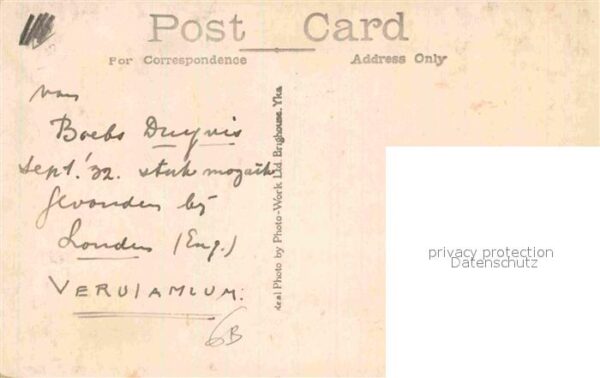 Post Card
For Correspondence Address Only
van
Boebs Duyvis
Sept. '32. stuk mozaik
gevonden bij
Londen (Eng.)
VERULAMIUM.
6B
eal Photo by Photo-Work Ltd. Brighouse, Yks
privacy protection
Datenschutz